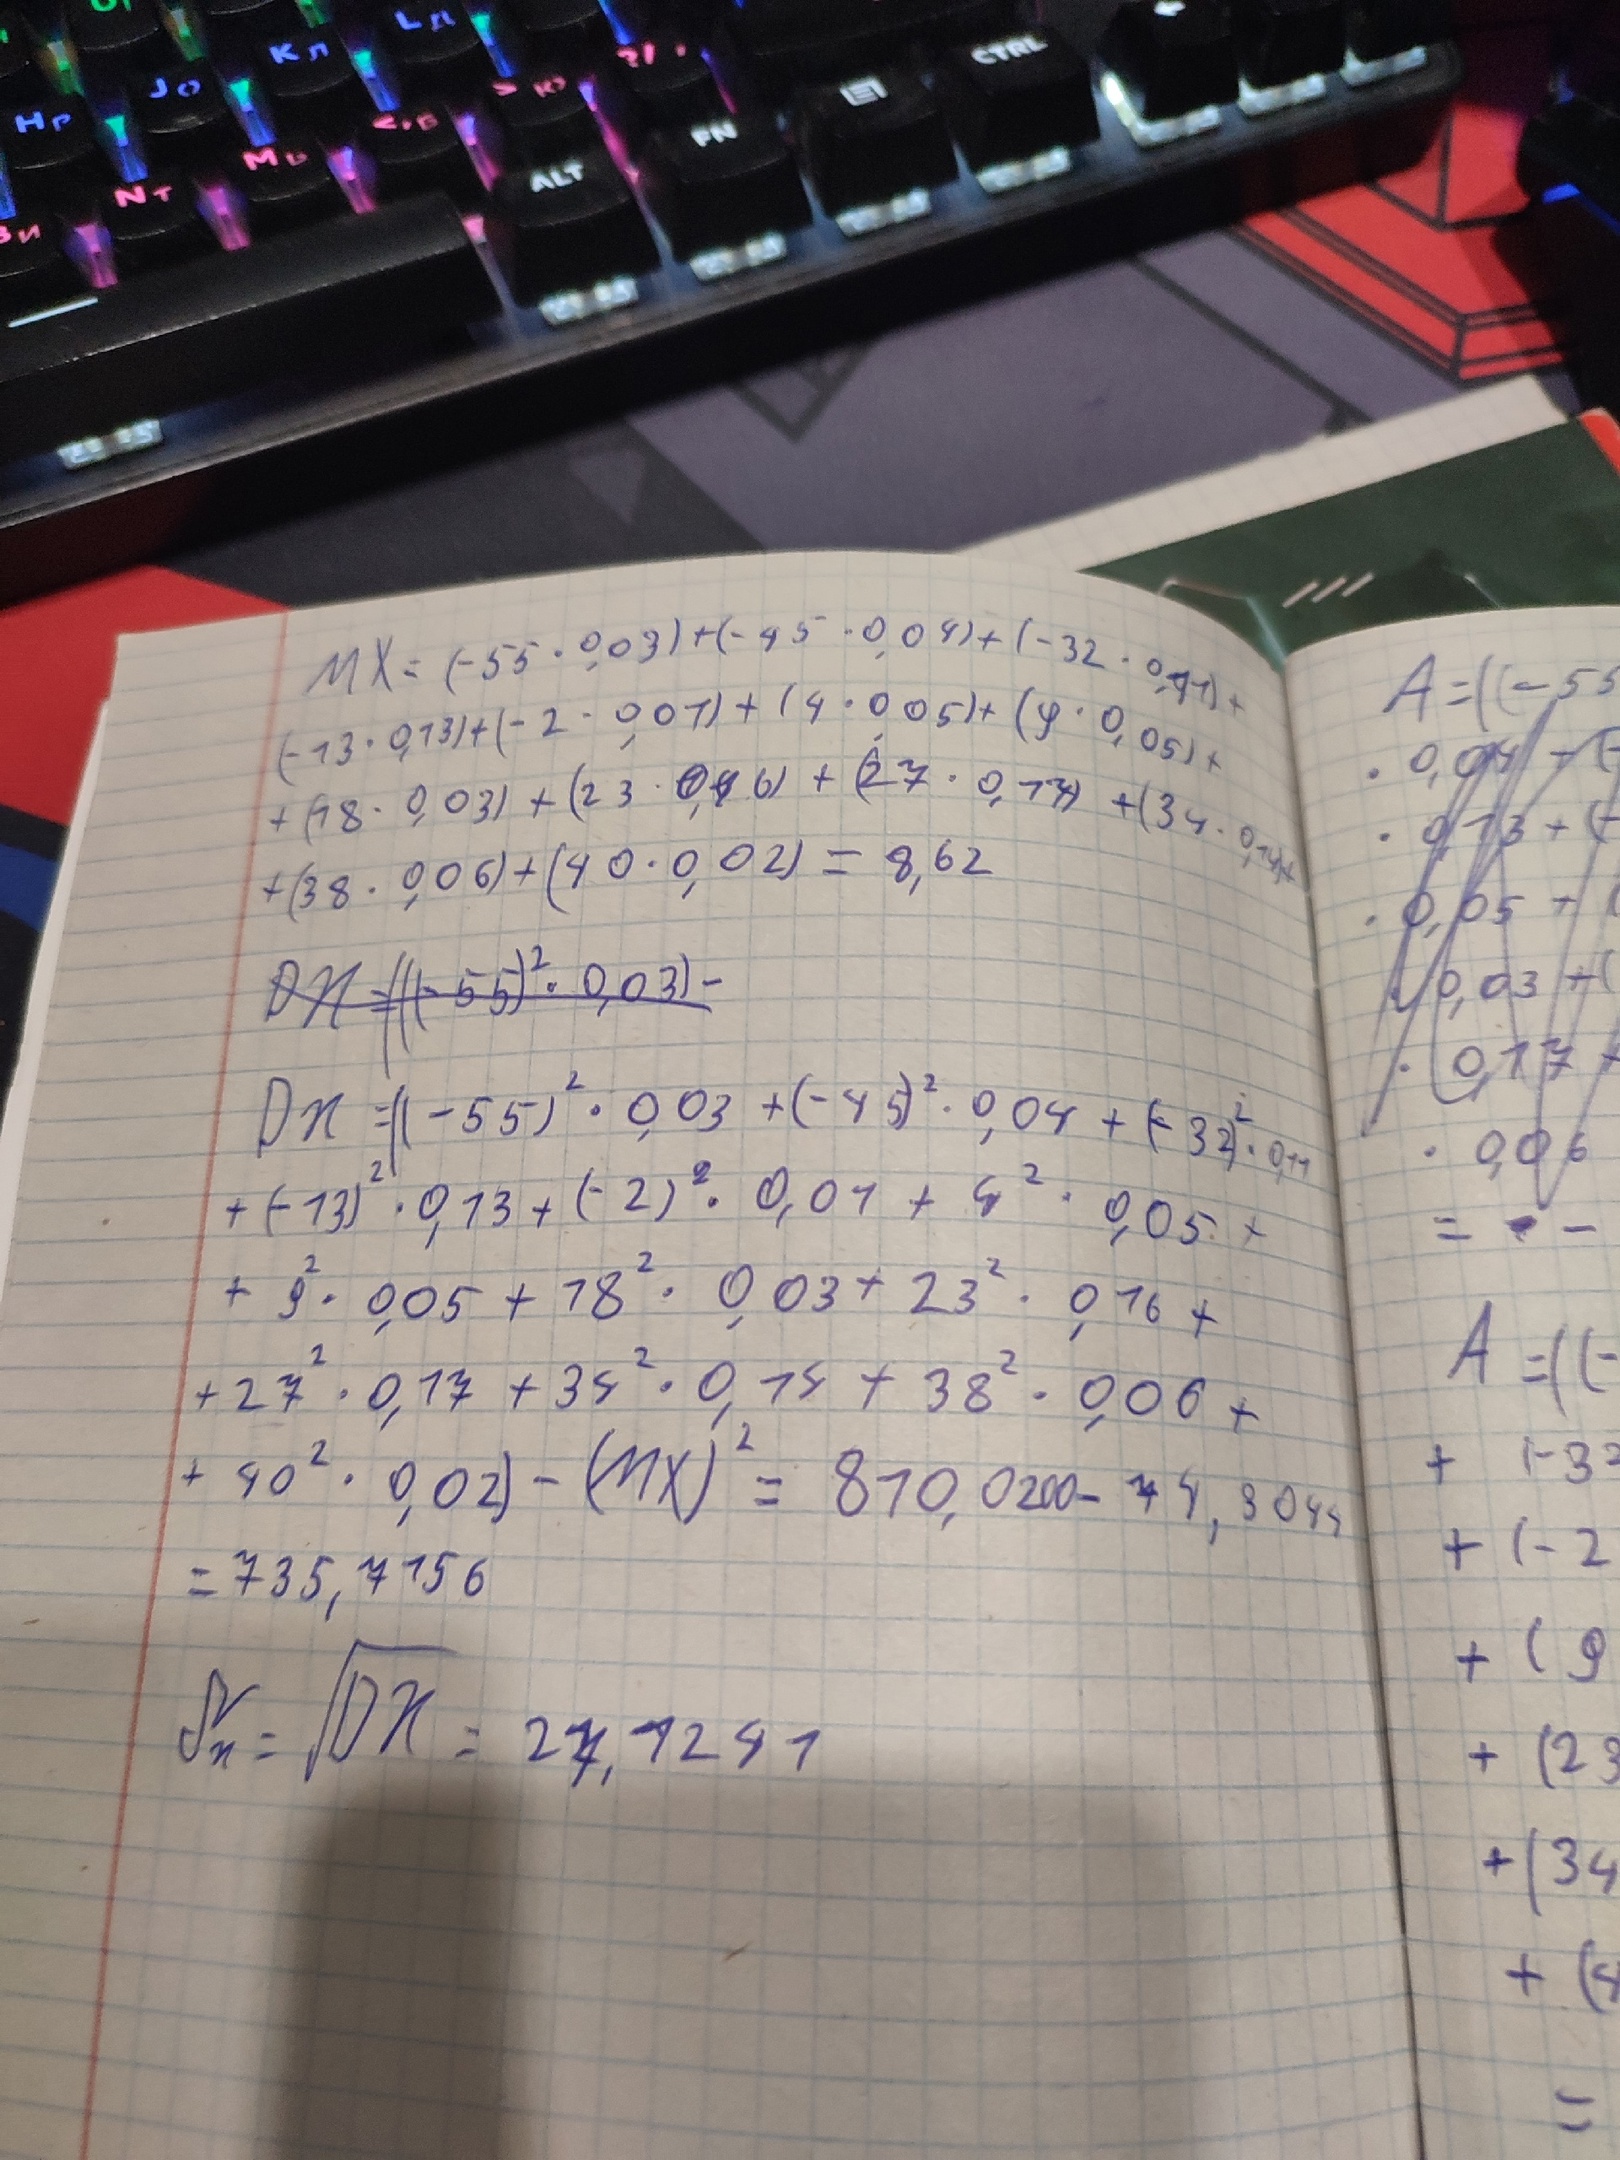 Lд
Kл
Jо
Hр
?/,
CTRL
Sю
FN
Nт
Mь
ALT
MX = (-55 · 0,03) + (-45 · 0,04) + (-32 · 0,11) +
(-13 · 0,13) + (-2 · 0,01) + (4 · 0,05) + (9 · 0,05) +
+ (18 · 0,03) + (23 · 0,16) + (27 · 0,17) + (34 · 0,14) +
+ (38 · 0,06) + (40 · 0,02) = 8,62
DX = (((-55)² · 0,03) -
Dx = ((-55)² · 0,03 + (-45)² · 0,04 + (-32)² · 0,11
+ (-13)² · 0,13 + (-2)² · 0,01 + 4² · 0,05 +
+ 9² · 0,05 + 18² · 0,03 + 23² · 0,16 +
+ 27² · 0,17 + 34² · 0,14 + 38² · 0,06 +
+ 40² · 0,02) - (MX)² = 810,0200 - 74,3044
= 735,7156
= √DX = 27,1241
A = ((-55
· 0,04 + (-
· 0,13 + (-
· 0,05 + (
· 0,03 + (
· 0,17 +
· 0,06
= -
A = ((-
+ (-32
+ (-2
+ (9
+ (23
+ (34
+ (4
=